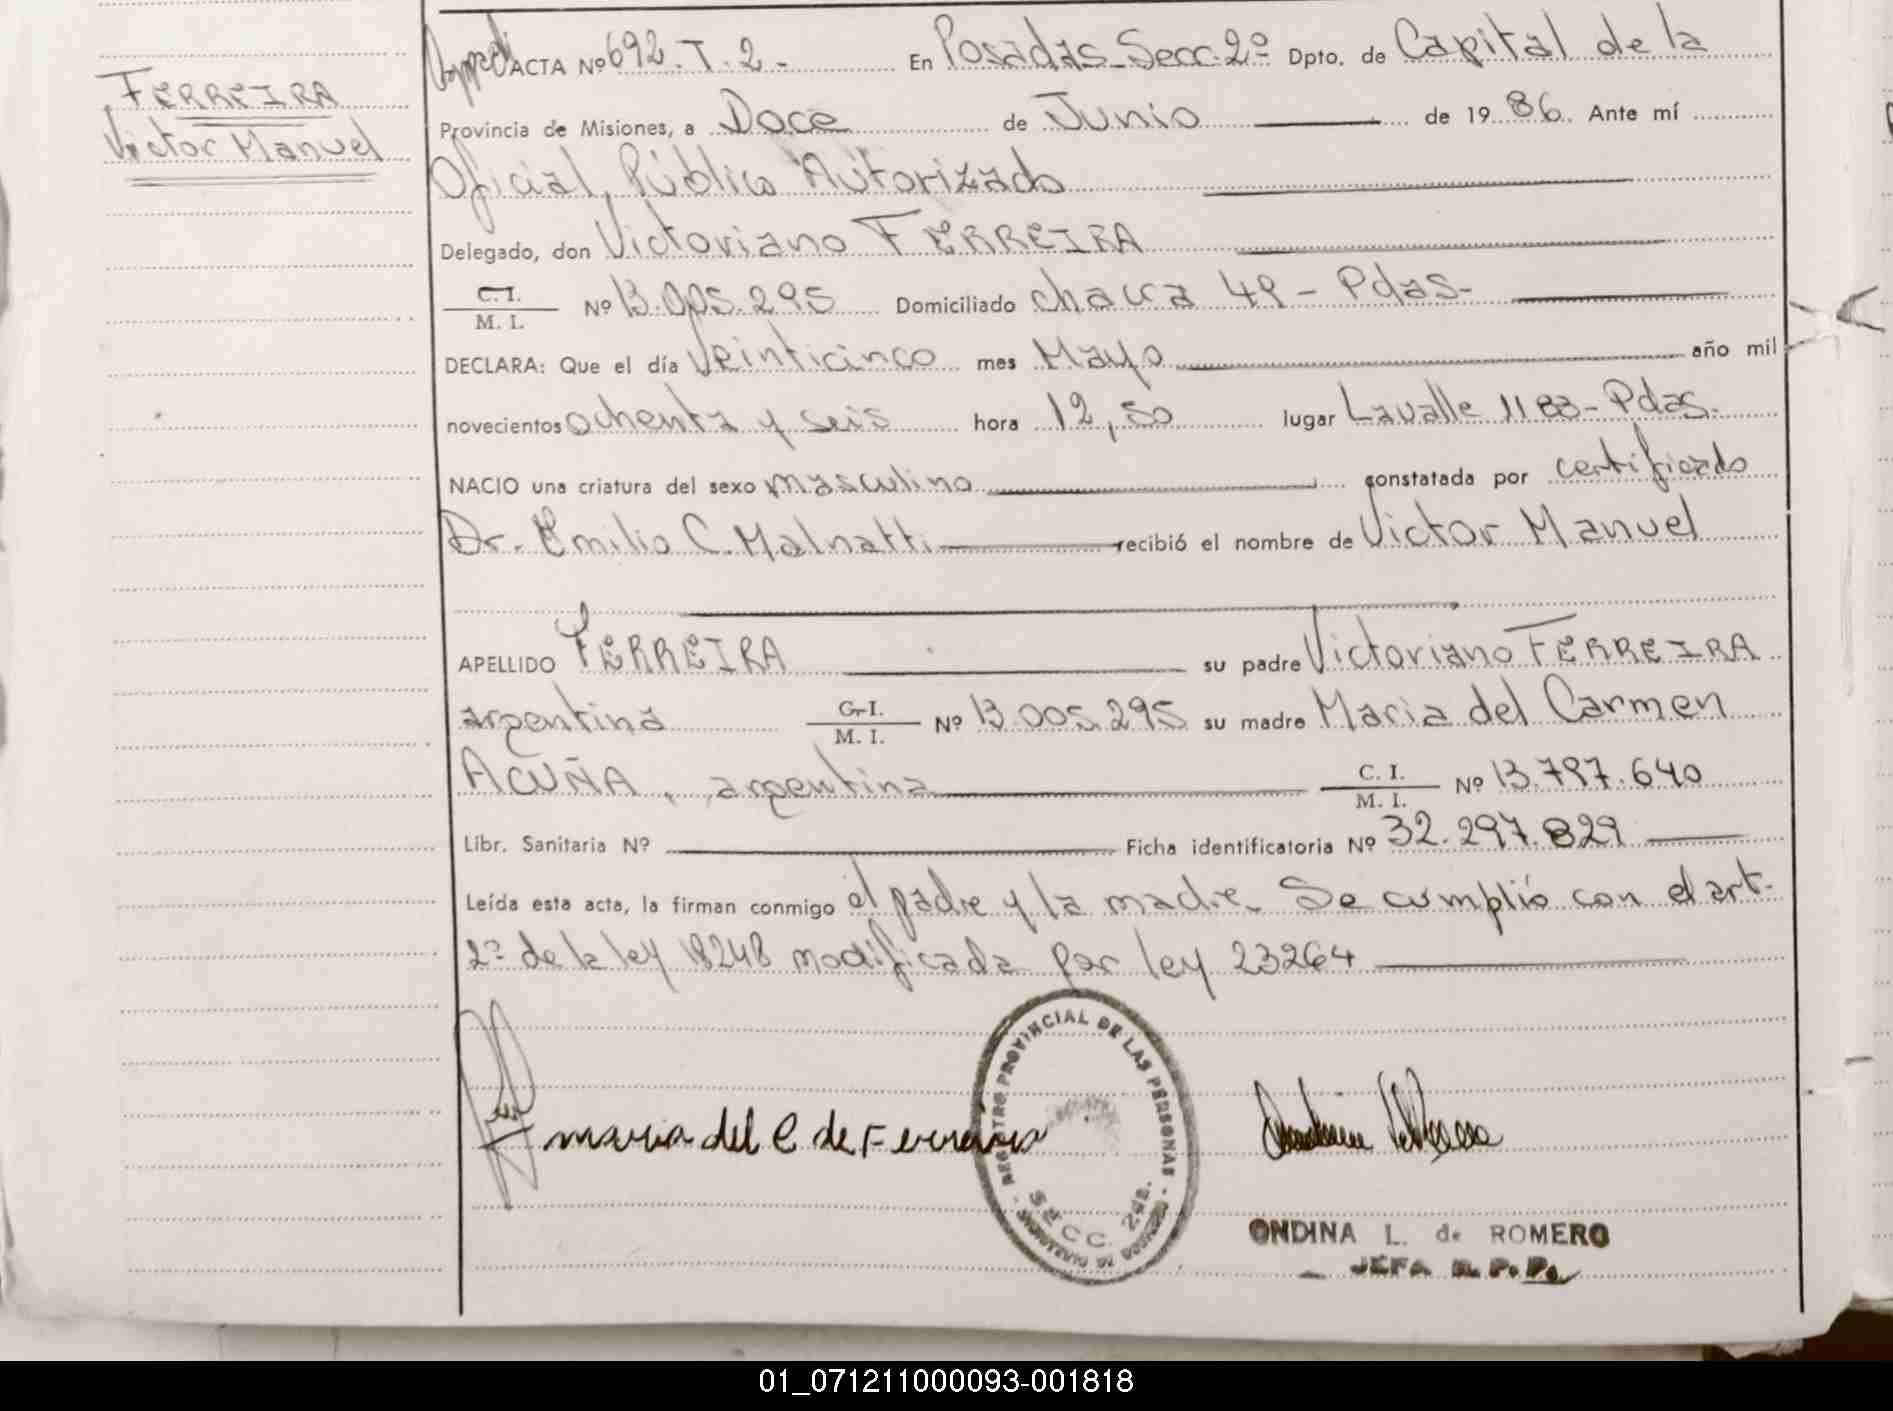 FERREIRA
Victor Manuel
ACTA Nº 692.T.2.- En Posadas Secc. 2º Dpto. de Capital de la
Provincia de Misiones, a Doce de Junio de 1986. Ante mí
Oficial Público Autorizado
Delegado, don Victoriano FERREIRA
C. I.
M. I. Nº 13.005.295 Domiciliado chacra 49 - Pdas.
DECLARA: Que el día Veinticinco mes Mayo año mil
novecientos ochenta y seis hora 12,50 lugar Lavalle 1183 - Pdas.
NACIO una criatura del sexo masculino constatada por certificado
Dr. Emilio C. Malnatti recibió el nombre de Victor Manuel
APELLIDO FERREIRA su padre Victoriano FERREIRA
argentina C. I.
M. I. Nº 13.005.295 su madre Maria del Carmen
ACUÑA, argentina C. I.
M. I. Nº 13.797.640
Libr. Sanitaria Nº Ficha identificatoria Nº 32.297.829
Leída esta acta, la firman conmigo el padre y la madre. Se cumplió con el art.
2º de la ley 18248 modificada por ley 23264
maria del C de Ferreira
REGISTRO PROVINCIAL DE LAS PERSONAS
SECC. 2da.
ONDINA L. de ROMERO
JEFA R. P. P.
01_071211000093-001818